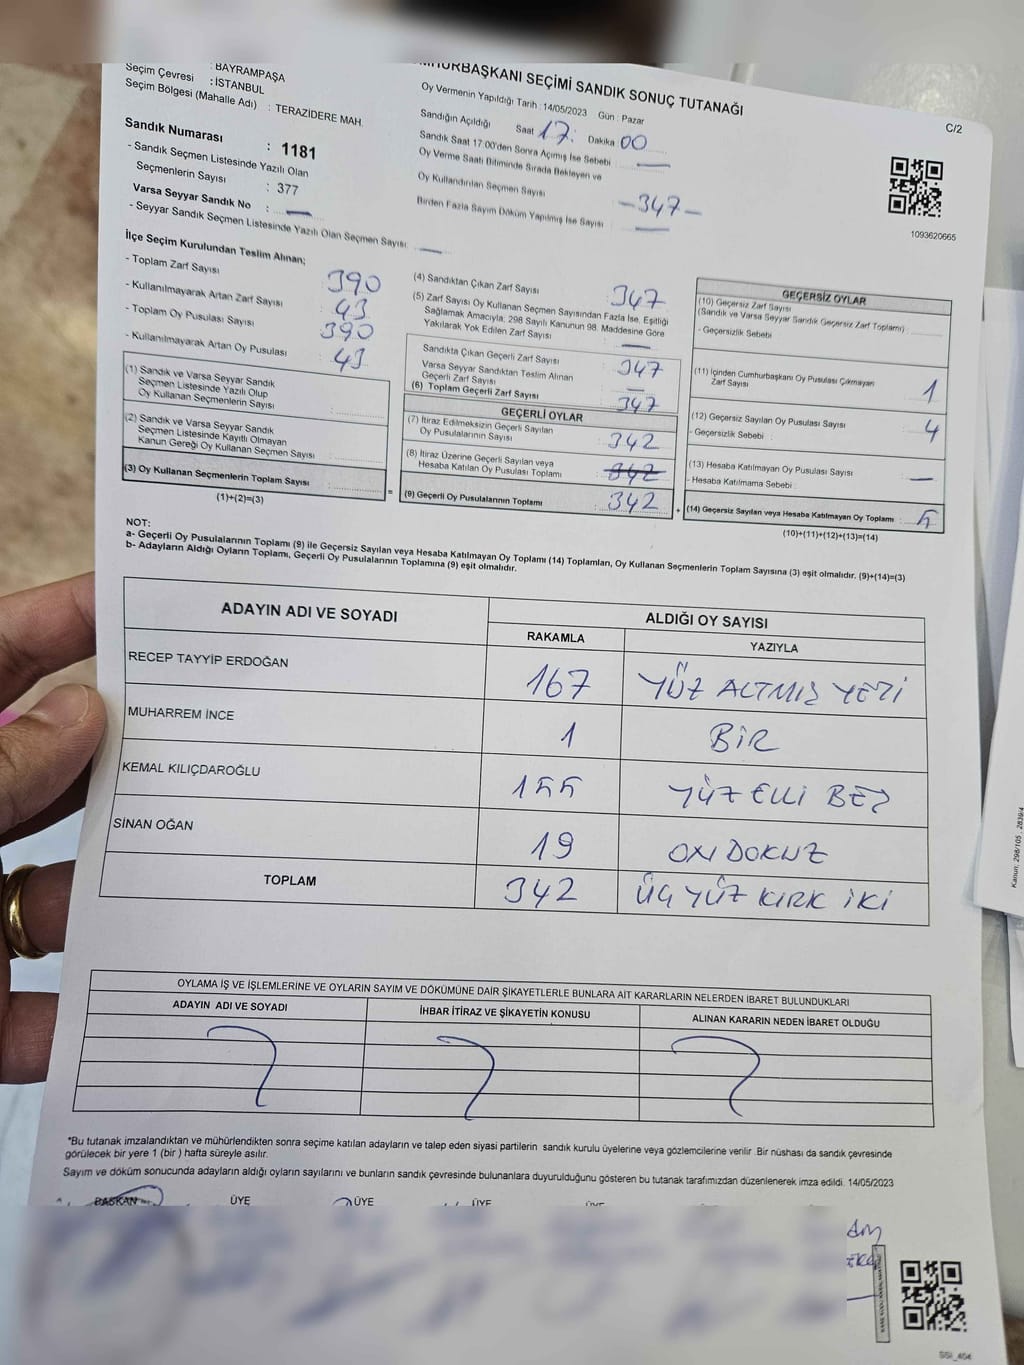 : BAYRAMPAŞA
Seçim Çevresi : İSTANBUL
Seçim Bölgesi (Mahalle Adı) : TERAZİDERE MAH.
Sandık Numarası : 1181
- Sandık Seçmen Listesinde Yazılı Olan
Seçmenlerin Sayısı : 377
Varsa Seyyar Sandık No : —
- Seyyar Sandık Seçmen Listesinde Yazılı Olan Seçmen Sayısı —
CUMHURBAŞKANI SEÇİMİ SANDIK SONUÇ TUTANAĞI
Oy Vermenin Yapıldığı Tarih : 14/05/2023 Gün : Pazar
Sandığın Açıldığı Saat 17: Dakika 00
Sandık Saat 17.00'den Sonra Açılmış İse Sebebi : —
Oy Verme Saati Bitiminde Sırada Bekleyen ve
Oy Kullandırılan Seçmen Sayısı : -347-
Birden Fazla Sayım Döküm Yapılmış İse Sayısı : —
C/2
1093620665
İlçe Seçim Kurulundan Teslim Alınan;
- Toplam Zarf Sayısı : 390
- Kullanılmayarak Artan Zarf Sayısı : 43
- Toplam Oy Pusulası Sayısı : 390
- Kullanılmayarak Artan Oy Pusulası : 43
(1) Sandık ve Varsa Seyyar Sandık
Seçmen Listesinde Yazılı Olup
Oy Kullanan Seçmenlerin Sayısı :
(2) Sandık ve Varsa Seyyar Sandık
Seçmen Listesinde Kayıtlı Olmayan
Kanun Gereği Oy Kullanan Seçmen Sayısı :
(3) Oy Kullanan Seçmenlerin Toplam Sayısı :
(1)+(2)=(3)
(4) Sandıktan Çıkan Zarf Sayısı : 347
(5) Zarf Sayısı Oy Kullanan Seçmen Sayısından Fazla İse, Eşitliği
Sağlamak Amacıyla; 298 Sayılı Kanunun 98. Maddesine Göre
Yakılarak Yok Edilen Zarf Sayısı : —
Sandıkta Çıkan Geçerli Zarf Sayısı : 347
Varsa Seyyar Sandıktan Teslim Alınan
Geçerli Zarf Sayısı : —
(6) Toplam Geçerli Zarf Sayısı : 347
GEÇERLİ OYLAR
(7) İtiraz Edilmeksizin Geçerli Sayılan
Oy Pusulalarının Sayısı : 342
(8) İtiraz Üzerine Geçerli Sayılan veya
Hesaba Katılan Oy Pusulası Toplamı : 342
(9) Geçerli Oy Pusulalarının Toplamı : 342
GEÇERSİZ OYLAR
(10) Geçersiz Zarf Sayısı
(Sandık ve Varsa Seyyar Sandık Geçersiz Zarf Toplamı) :
- Geçersizlik Sebebi :
(11) İçinden Cumhurbaşkanı Oy Pusulası Çıkmayan
Zarf Sayısı : 1
(12) Geçersiz Sayılan Oy Pusulası Sayısı : 4
- Geçersizlik Sebebi :
(13) Hesaba Katılmayan Oy Pusulası Sayısı : —
- Hesaba Katılmama Sebebi :
(14) Geçersiz Sayılan veya Hesaba Katılmayan Oy Toplamı : 5
(10)+(11)+(12)+(13)=(14)
NOT:
a- Geçerli Oy Pusulalarının Toplamı (9) ile Geçersiz Sayılan veya Hesaba Katılmayan Oy Toplamı (14) Toplamları, Oy Kullanan Seçmenlerin Toplam Sayısına (3) eşit olmalıdır. (9)+(14)=(3)
b- Adayların Aldığı Oyların Toplamı, Geçerli Oy Pusulalarının Toplamına (9) eşit olmalıdır.
ADAYIN ADI VE SOYADI
ALDIĞI OY SAYISI
RAKAMLA YAZIYLA
RECEP TAYYİP ERDOĞAN 167 YÜZ ALTMIŞ YEDİ
MUHARREM İNCE 1 BİR
KEMAL KILIÇDAROĞLU 155 YÜZ ELLİ BEŞ
SİNAN OĞAN 19 ON DOKUZ
TOPLAM 342 ÜÇ YÜZ KIRK İKİ
OYLAMA İŞ VE İŞLEMLERİNE VE OYLARIN SAYIM VE DÖKÜMÜNE DAİR ŞİKAYETLERLE BUNLARA AİT KARARLARIN NELERDEN İBARET BULUNDUKLARI
ADAYIN ADI VE SOYADI İHBAR İTİRAZ VE ŞİKAYETİN KONUSU ALINAN KARARIN NEDEN İBARET OLDUĞU
*Bu tutanak imzalandıktan ve mühürlendikten sonra seçime katılan adayların ve talep eden siyasi partilerin sandık kurulu üyelerine veya gözlemcilerine verilir. Bir nüshası da sandık çevresinde
görülecek bir yere 1 (bir) hafta süreyle asılır.
Sayım ve döküm sonucunda adayların aldığı oyların sayılarını ve bunların sandık çevresinde bulunanlara duyurulduğunu gösteren bu tutanak tarafımızdan düzenlenerek imza edildi. 14/05/2023
BAŞKAN ÜYE ÜYE ÜYE ÜYE
Kanun: 298/105 2839/4